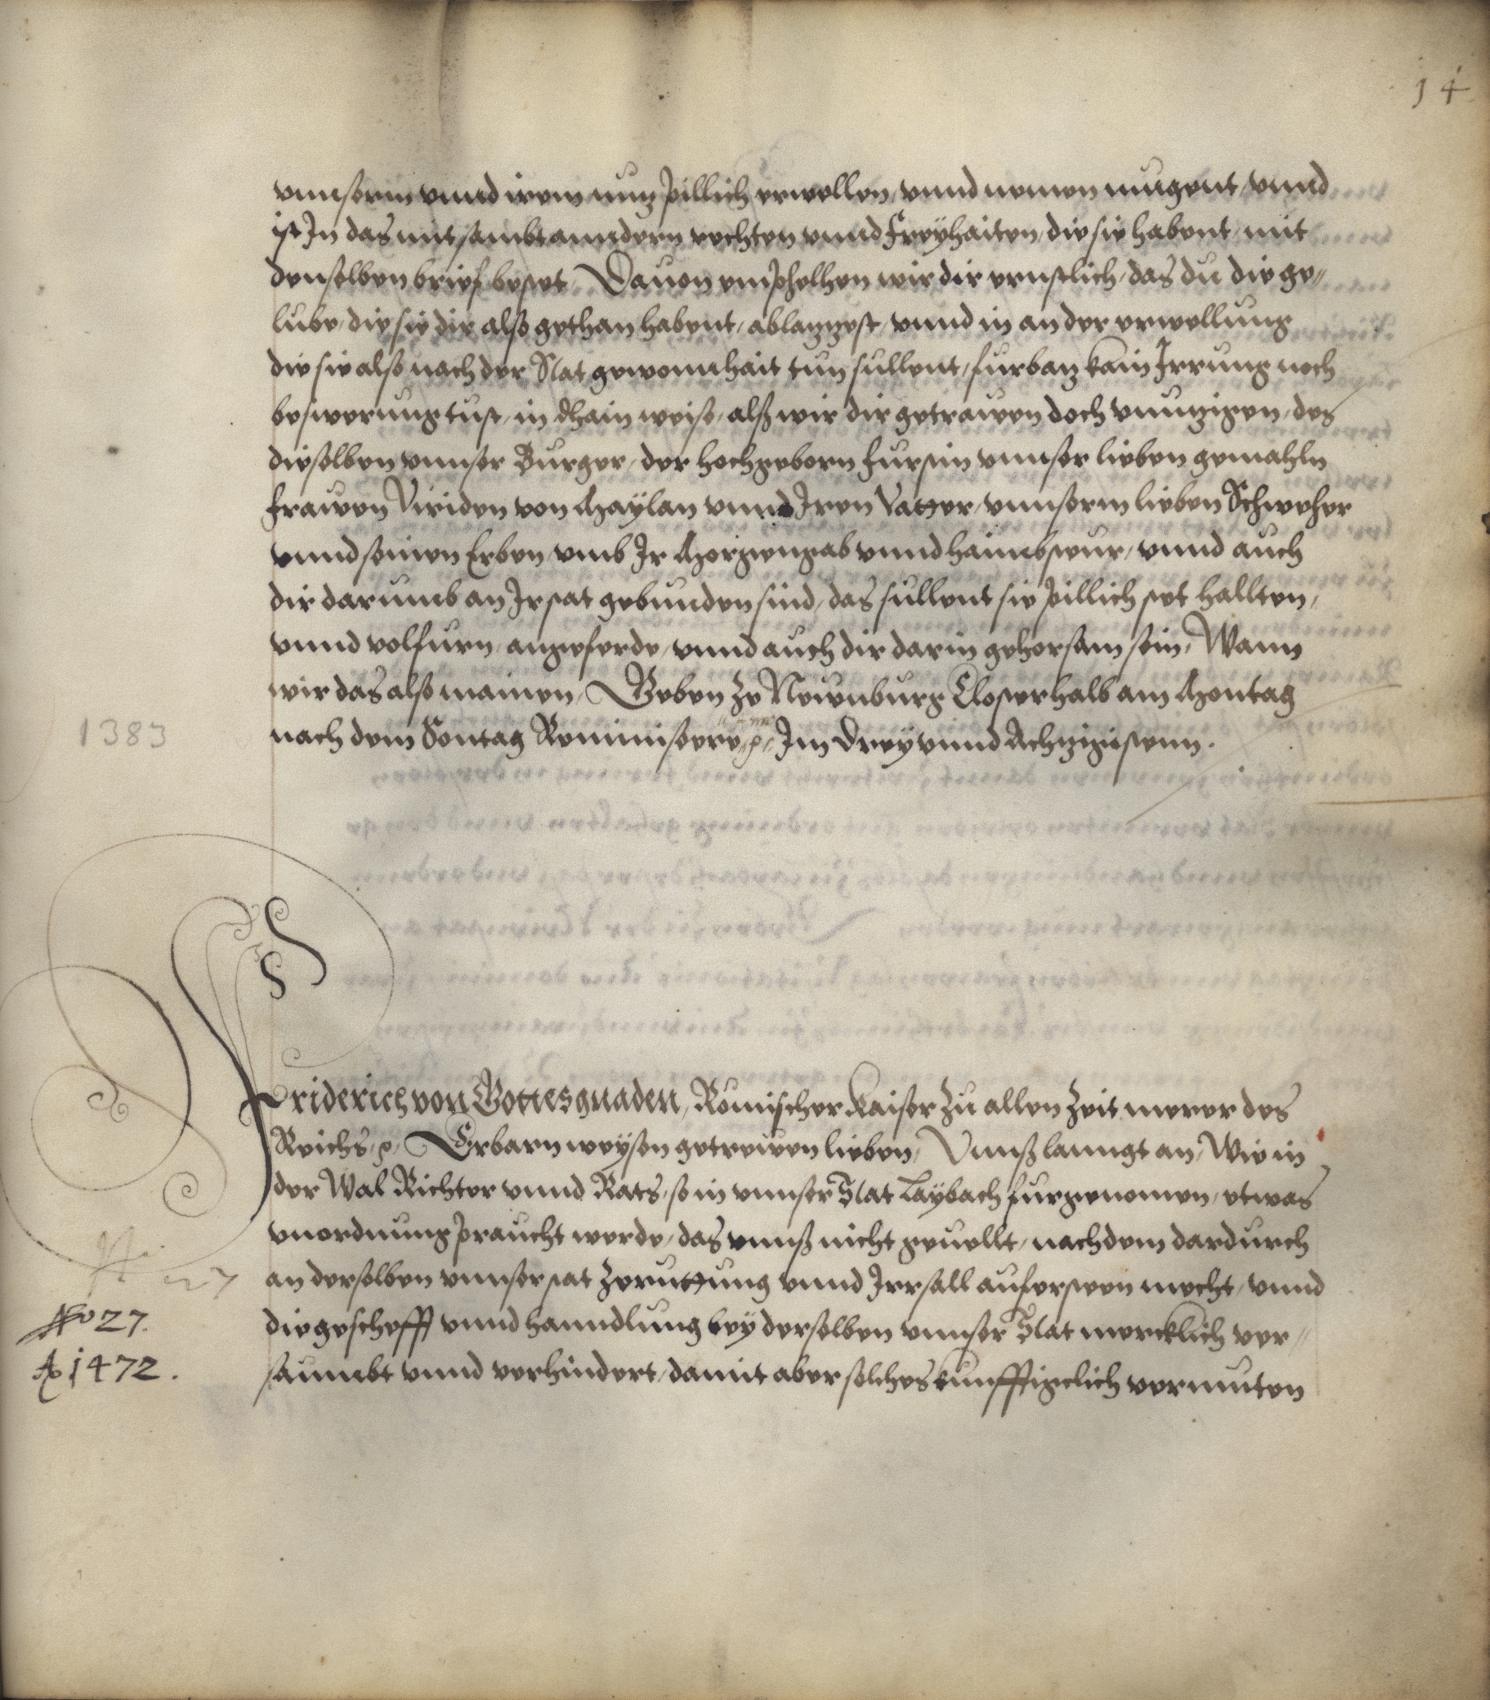 14
vnnserm vnnd irem nuz pillich erwellen, vnnd nemen mugent, vnnd
ist In das mit sambt anndern rechten vnnd Freyhaiten, die sie habent, mit
denselben brief bestet, Dauon emphelhen wir dir ernstlich, das du die ge-
lube, die sie dir also gethan habent, ablazzest, vnnd in an der erwellung
die sie also nach der Stat gewonnhait tun sullent, furbaz kain Irrung noch
beswerung tust, in dhain weise, alß wir dir getrawen, doch vnuzigen, des
dieselben vnnser Burger, der hochgeborn furstin vnnser lieben gemahln
frawen Viriden von Maylan vnnd Iren Vatter, vnnserm lieben Schweher
vnnd seinen Erben, vmb Ir Morgengab vnnd haimbsteur, vnnd auch
dir darumb an Ir stat gebunden sind, das sullent sie pillich stet hallten,
vnnd volfurn, angeferde, vnnd auch dir darin gehorsam sein, Wann
wir das also mainen, Geben ze Newnburg Closterhalb am Montag
1383
nach dem Sontag Reminiscere, Im Drey vnnd Achzigistenn.
Friderich von Gottes gnaden, Römischer Kaiser zu allen Zeit merer des
Reichs, Erbarn weysen getrewen lieben, Vnnß lanngt an, Wie in
der Wal Richter vnnd Rats, so in vnnser Stat Laybach furgenomen, etwas
vnordnung praucht werde, das vnnß nicht geuellt, nachdem dardurch
an derselben vnnser stat Zeruttung vnnd Irrsall aufersteen mecht, vnnd
die geschefft vnnd hanndlung bey derselben vnnser Stat mercklich ver-
saumbt vnnd verhindert, damit aber solches kunfftigclich vermiten
N 27
No 27.
Ao 1472.